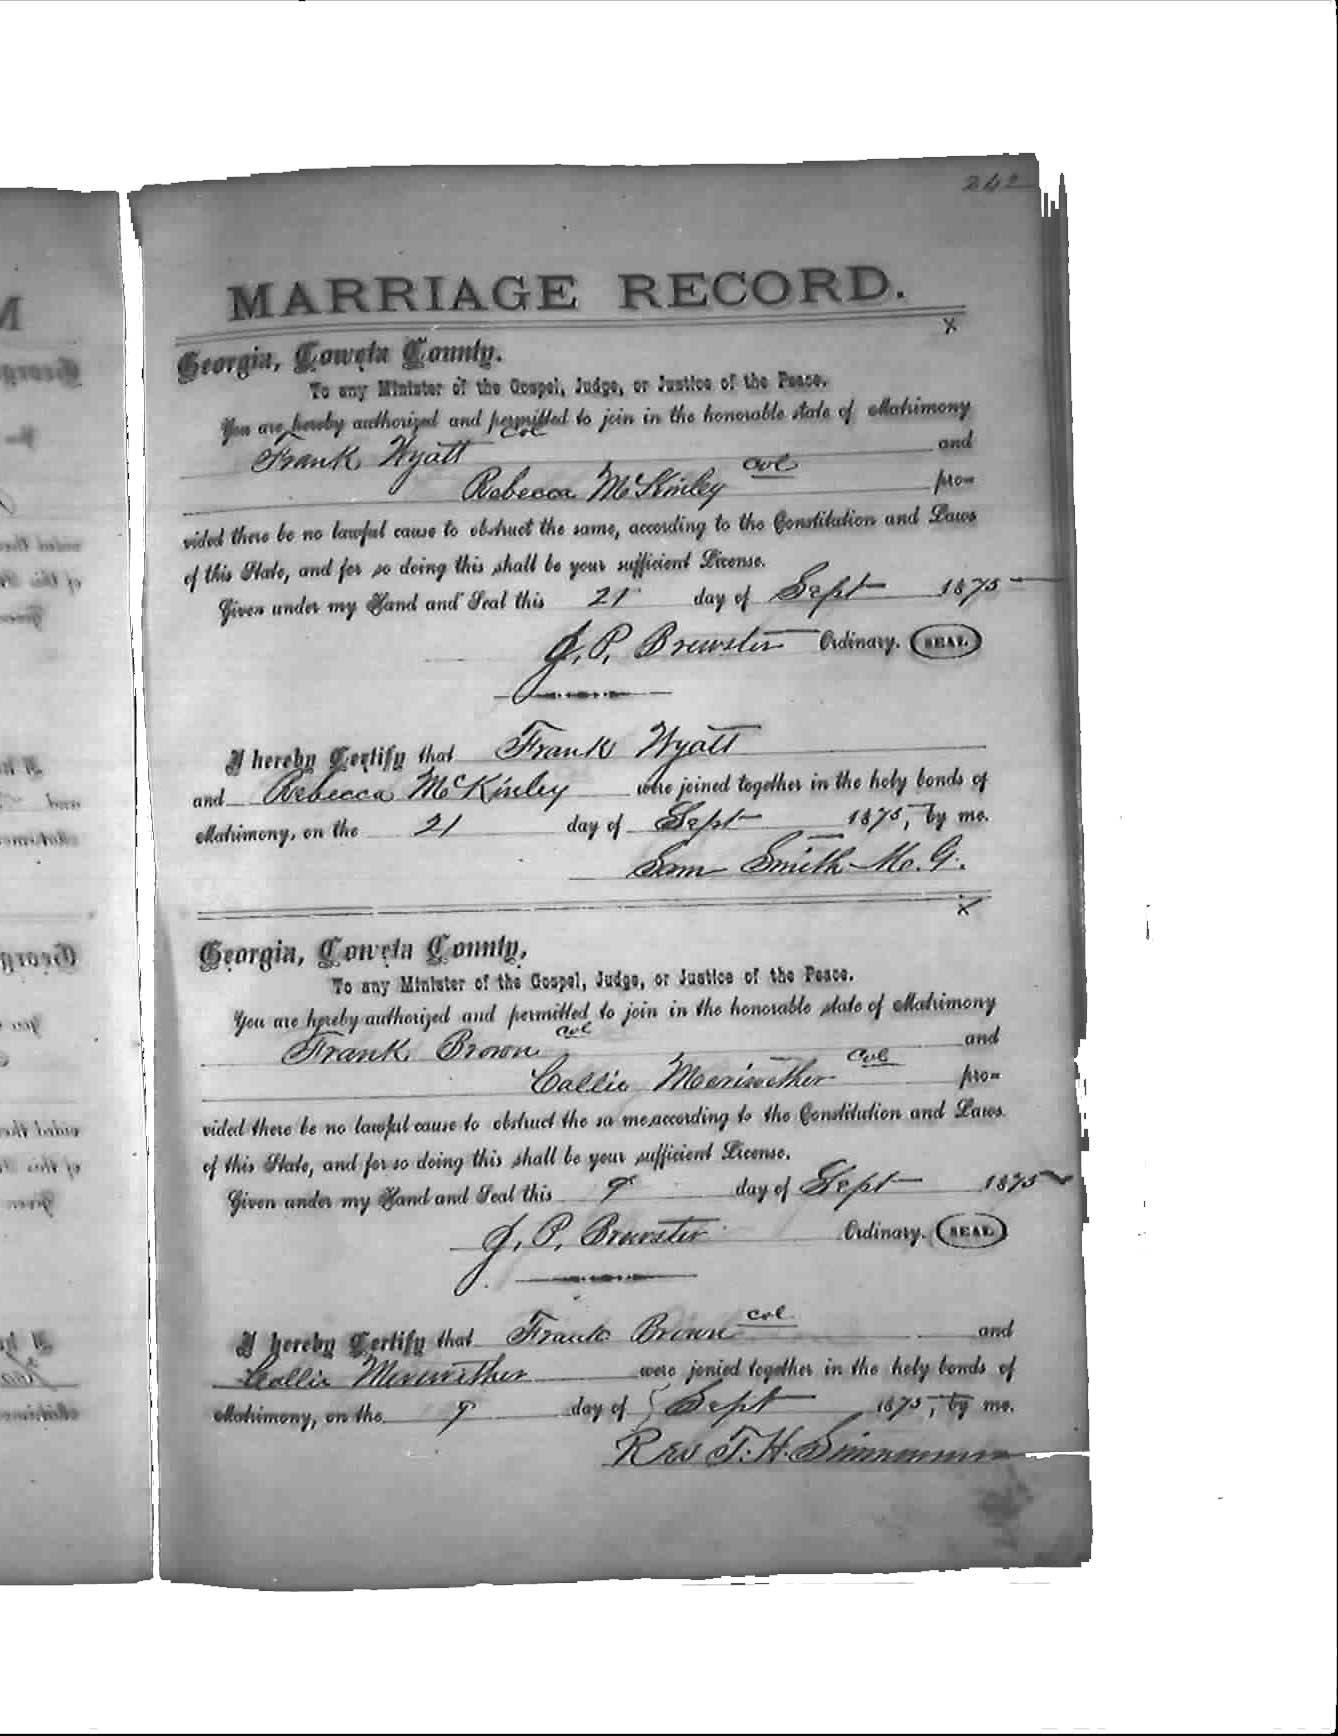 242
MARRIAGE RECORD.
x
Georgia, Coweta County.
To any Minister of the Gospel, Judge, or Justice of the Peace.
You are hereby authorized and permitted to join in the honorable state of Matrimony
Frank Wyatt col and
Rebecca McKinley col pro-
vided there be no lawful cause to obstruct the same, according to the Constitution and Laws
of this State, and for so doing this shall be your sufficient License.
Given under my Hand and Seal this 21 day of Sept 1875
J. P. Brewster Ordinary. SEAL
I hereby Certify that Frank Wyatt
and Rebecca McKinley were joined together in the holy bonds of
Matrimony, on the 21 day of Sept 1875, by me.
Sam Smith M. G.
x
Georgia, Coweta County,
To any Minister of the Gospel, Judge, or Justice of the Peace.
You are hereby authorized and permitted to join in the honorable state of Matrimony
Frank Brown col and
Callie Meriwether col pro-
vided there be no lawful cause to obstruct the sa me,according to the Constitution and Laws
of this State, and for so doing this shall be your sufficient License.
Given under my Hand and Seal this 9 day of Sept 1875
J. P. Brewster Ordinary. SEAL
I hereby Certify that Frank Brown col and
Callie Meriwether were jonied together in the holy bonds of
Matrimony, on the 9 day of Sept 1875, by me.
Rev T. H.